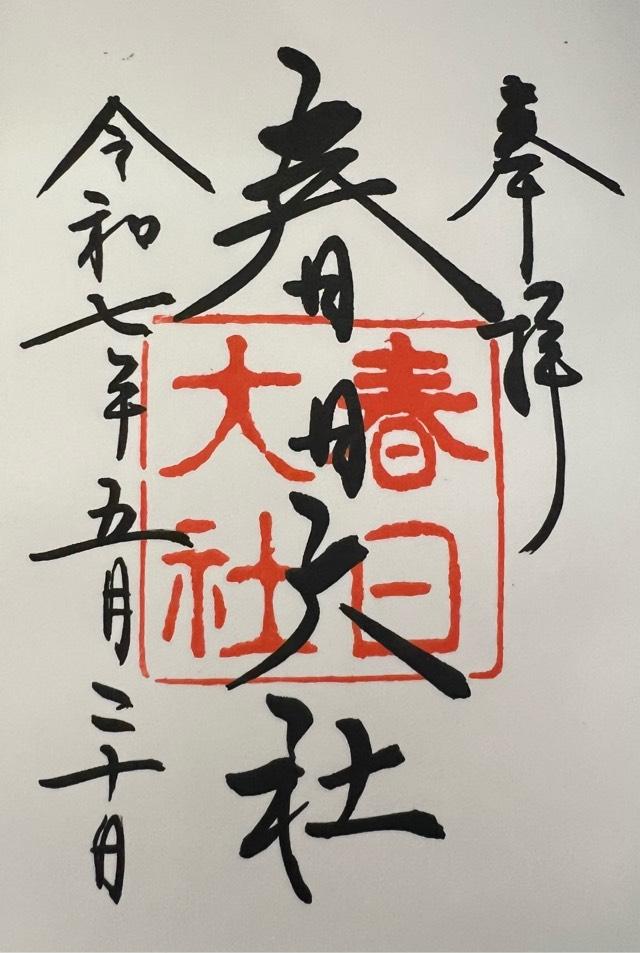 奉拝
春日大社
春日大社
令和七年五月二十日